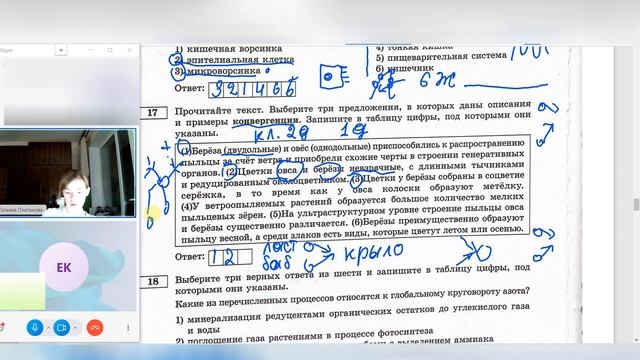 Skype
1) кишечная ворсинка
2) эпителиальная клетка
3) микроворсинка
4) тонкая кишка
5) пищеварительная система
6) кишечник
Ответ: 3 2 1 4 6 5
6 Ж
17
Прочитайте текст. Выберите три предложения, в которых даны описания
и примеры конвергенции. Запишите в таблицу цифры, под которыми они
указаны.
кл. 2д 1д
(1)Берёза (двудольные) и овёс (однодольные) приспособились к распространению
пыльцы за счёт ветра и приобрели схожие черты в строении генеративных
органов. (2)Цветки овса и берёзы невзрачные, с длинными тычинками
и редуцированным околоцветником. (3)Цветки у берёзы собраны в соцветие
серёжка, в то время как у овса колоски образуют метёлку.
(4)У ветроопыляемых растений образуется большое количество мелких
пыльцевых зёрен. (5)На ультраструктурном уровне строение пыльцы овса
и берёзы существенно различается. (6)Берёзы преимущественно образуют
пыльцу весной, а среди злаков есть виды, которые цветут летом или осенью.
Ответ: 1 2
крыло
18
Выберите три верных ответа из шести и запишите в таблицу цифры, под
которыми они указаны.
Какие из перечисленных процессов относятся к глобальному круговороту азота?
1) минерализация редуцентами органических остатков до углекислого газа
и воды
2) поглощение газа растениями в процессе фотосинтеза
с выделением аммиака
Татьяна Платонова
ЕК